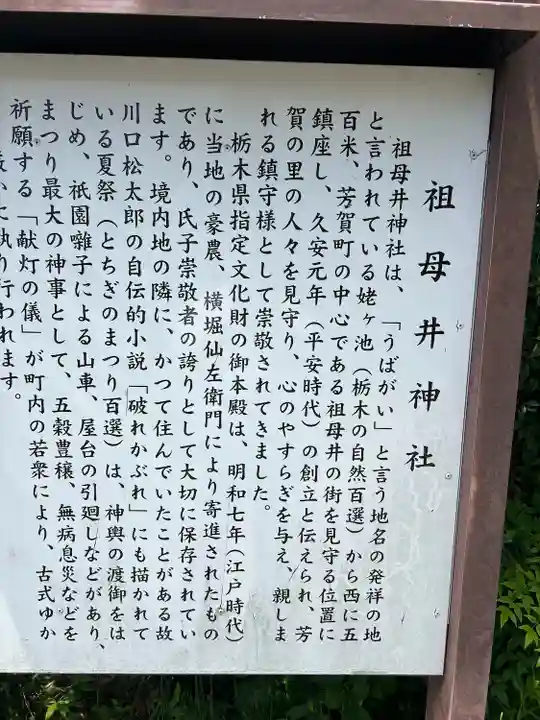 祖母井神社
祖母井神社は、「うばがい」と言う地名の発祥の地
と言われている姥ヶ池（栃木の自然百選）から西に五
百米、芳賀町の中心である祖母井の街を見守る位置に
鎮座し、久安元年（平安時代）の創立と伝えられ、芳
賀の里の人々を見守り、心のやすらぎを与え、親しま
れる鎮守様として崇敬されてきました。
栃木県指定文化財の御本殿は、明和七年（江戸時代）
に当地の豪農、横堀仙左衛門により寄進されたもの
であり、氏子崇敬者の誇りとして大切に保存されてい
ます。境内地の隣に、かつて住んでいたことがある故
川口松太郎の自伝的小説「破れかぶれ」にも描かれて
いる夏祭（とちぎのまつり百選）は、神輿の渡御をは
じめ、祇園囃子による山車、屋台の引廻しなどがあり、
まつり最大の神事として、五穀豊穣、無病息災などを
祈願する「献灯の儀」が町内の若衆により、古式ゆか
執り行われます。